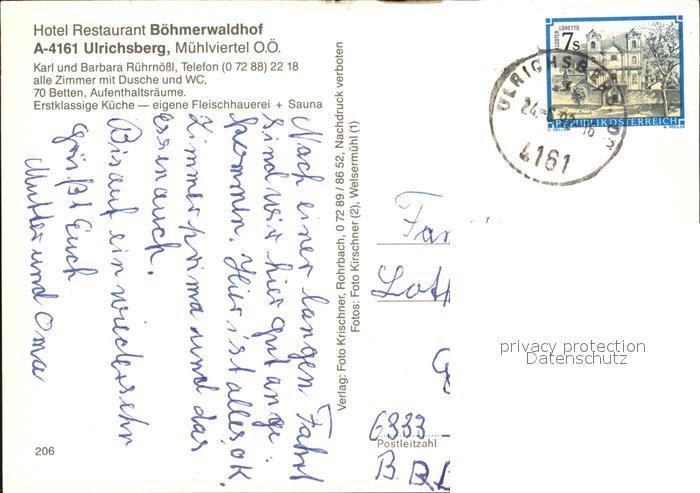 Hotel Restaurant Böhmerwaldhof
A-4161 Ulrichsberg, Mühlviertel O.Ö.
Karl und Barbara Rührnößl, Telefon (0 72 88) 22 18
alle Zimmer mit Dusche und WC,
70 Betten, Aufenthaltsräume.
Erstklassige Küche — eigene Fleischhauerei + Sauna
Nach einer langen Fahrt
sind wir hier gut ange-
kommen. Hier ist alles ok.
Zimmer prima und das
essen auch.
Bis auf ein wiedersehn
grüßt Euch
Mutter und Oma
206
Verlag: Foto Krischner, Rohrbach, 0 72 89 / 86 52, Nachdruck verboten
Fotos: Foto Kirschner (2), Welsermühl (1)
KLOSTER LORETTO
7s
REPUBLIK ÖSTERREICH
ULRICHSBERG
4161
Fam
Loth
6333
Postleitzahl
B.R.D
privacy protection
Datenschutz